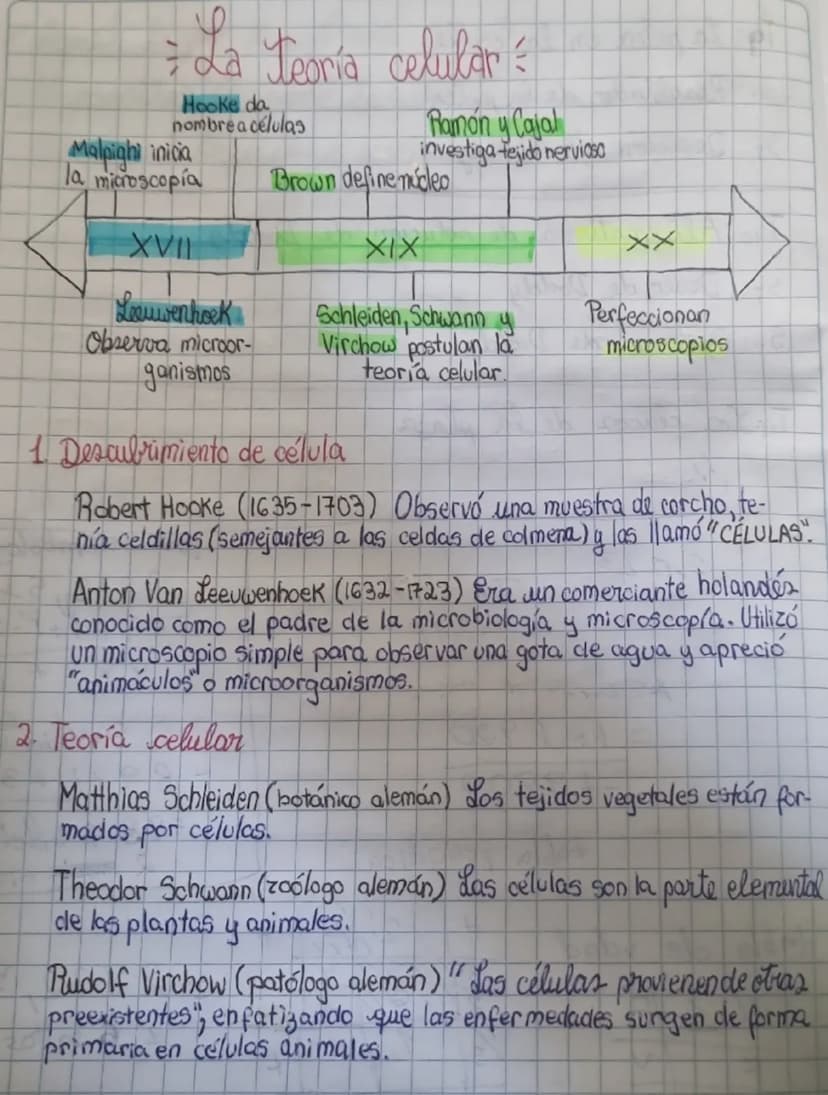 La teoría celular
Hooke da
nombre a células
Ramón y Cajal
investiga tejido nervioso
Malpighi inicia
la microscopía
Brown define núcleo
XVII
XIX
XX
Leeuwenhoek
Observa microor-
ganismos
Schleiden, Schwann y
Virchow postulan la
teoría celular.
Perfeccionan
microscopios
1. Descubrimiento de célula
Robert Hooke (1635-1703) Observó una muestra de corcho, te-
nía celdillas (semejantes a las celdas de colmena) y las llamó "CÉLULAS".
Anton Van Leeuwenhoek (1632-1723) Era un comerciante holandés
conocido como el padre de la microbiología y microscopía. Utilizó
un microscopio simple para observar una gota de agua y apreció
"animáculos" o microorganismos.
2. Teoría celular
Matthias Schleiden (botánico alemán) Los tejidos vegetales están for-
mados por células.
Theodor Schwann (zoólogo alemán) Las células son la parte elemental
de las plantas y animales.
Rudolf Virchow (patólogo alemán) "Las células provienen de otras
preexistentes", enfatizando que las enfermedades surgen de forma
primaria en células animales.